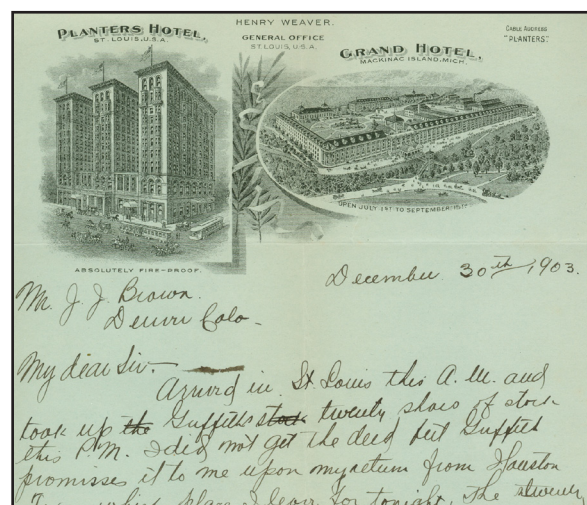 HENRY WEAVER.
PLANTERS HOTEL,
ST. LOUIS, U.S.A.
GENERAL OFFICE
ST. LOUIS, U.S.A.
CABLE ADDRESS
"PLANTERS".
GRAND HOTEL,
MACKINAC ISLAND, MICH.
OPEN JULY 1ST TO SEPTEMBER 15TH
ABSOLUTELY FIRE-PROOF.
December 30th, 1903.
Mr. J. J. Brown.
Denver Colo-
My dear Sir.-
Arrived in St Louis this A. M. and
took up the Guffeths stock twenty shares of stock
this P.M. I did not get the deed but Guffeth
promises it to me upon my return from Houston
which place I leave for tonight, The